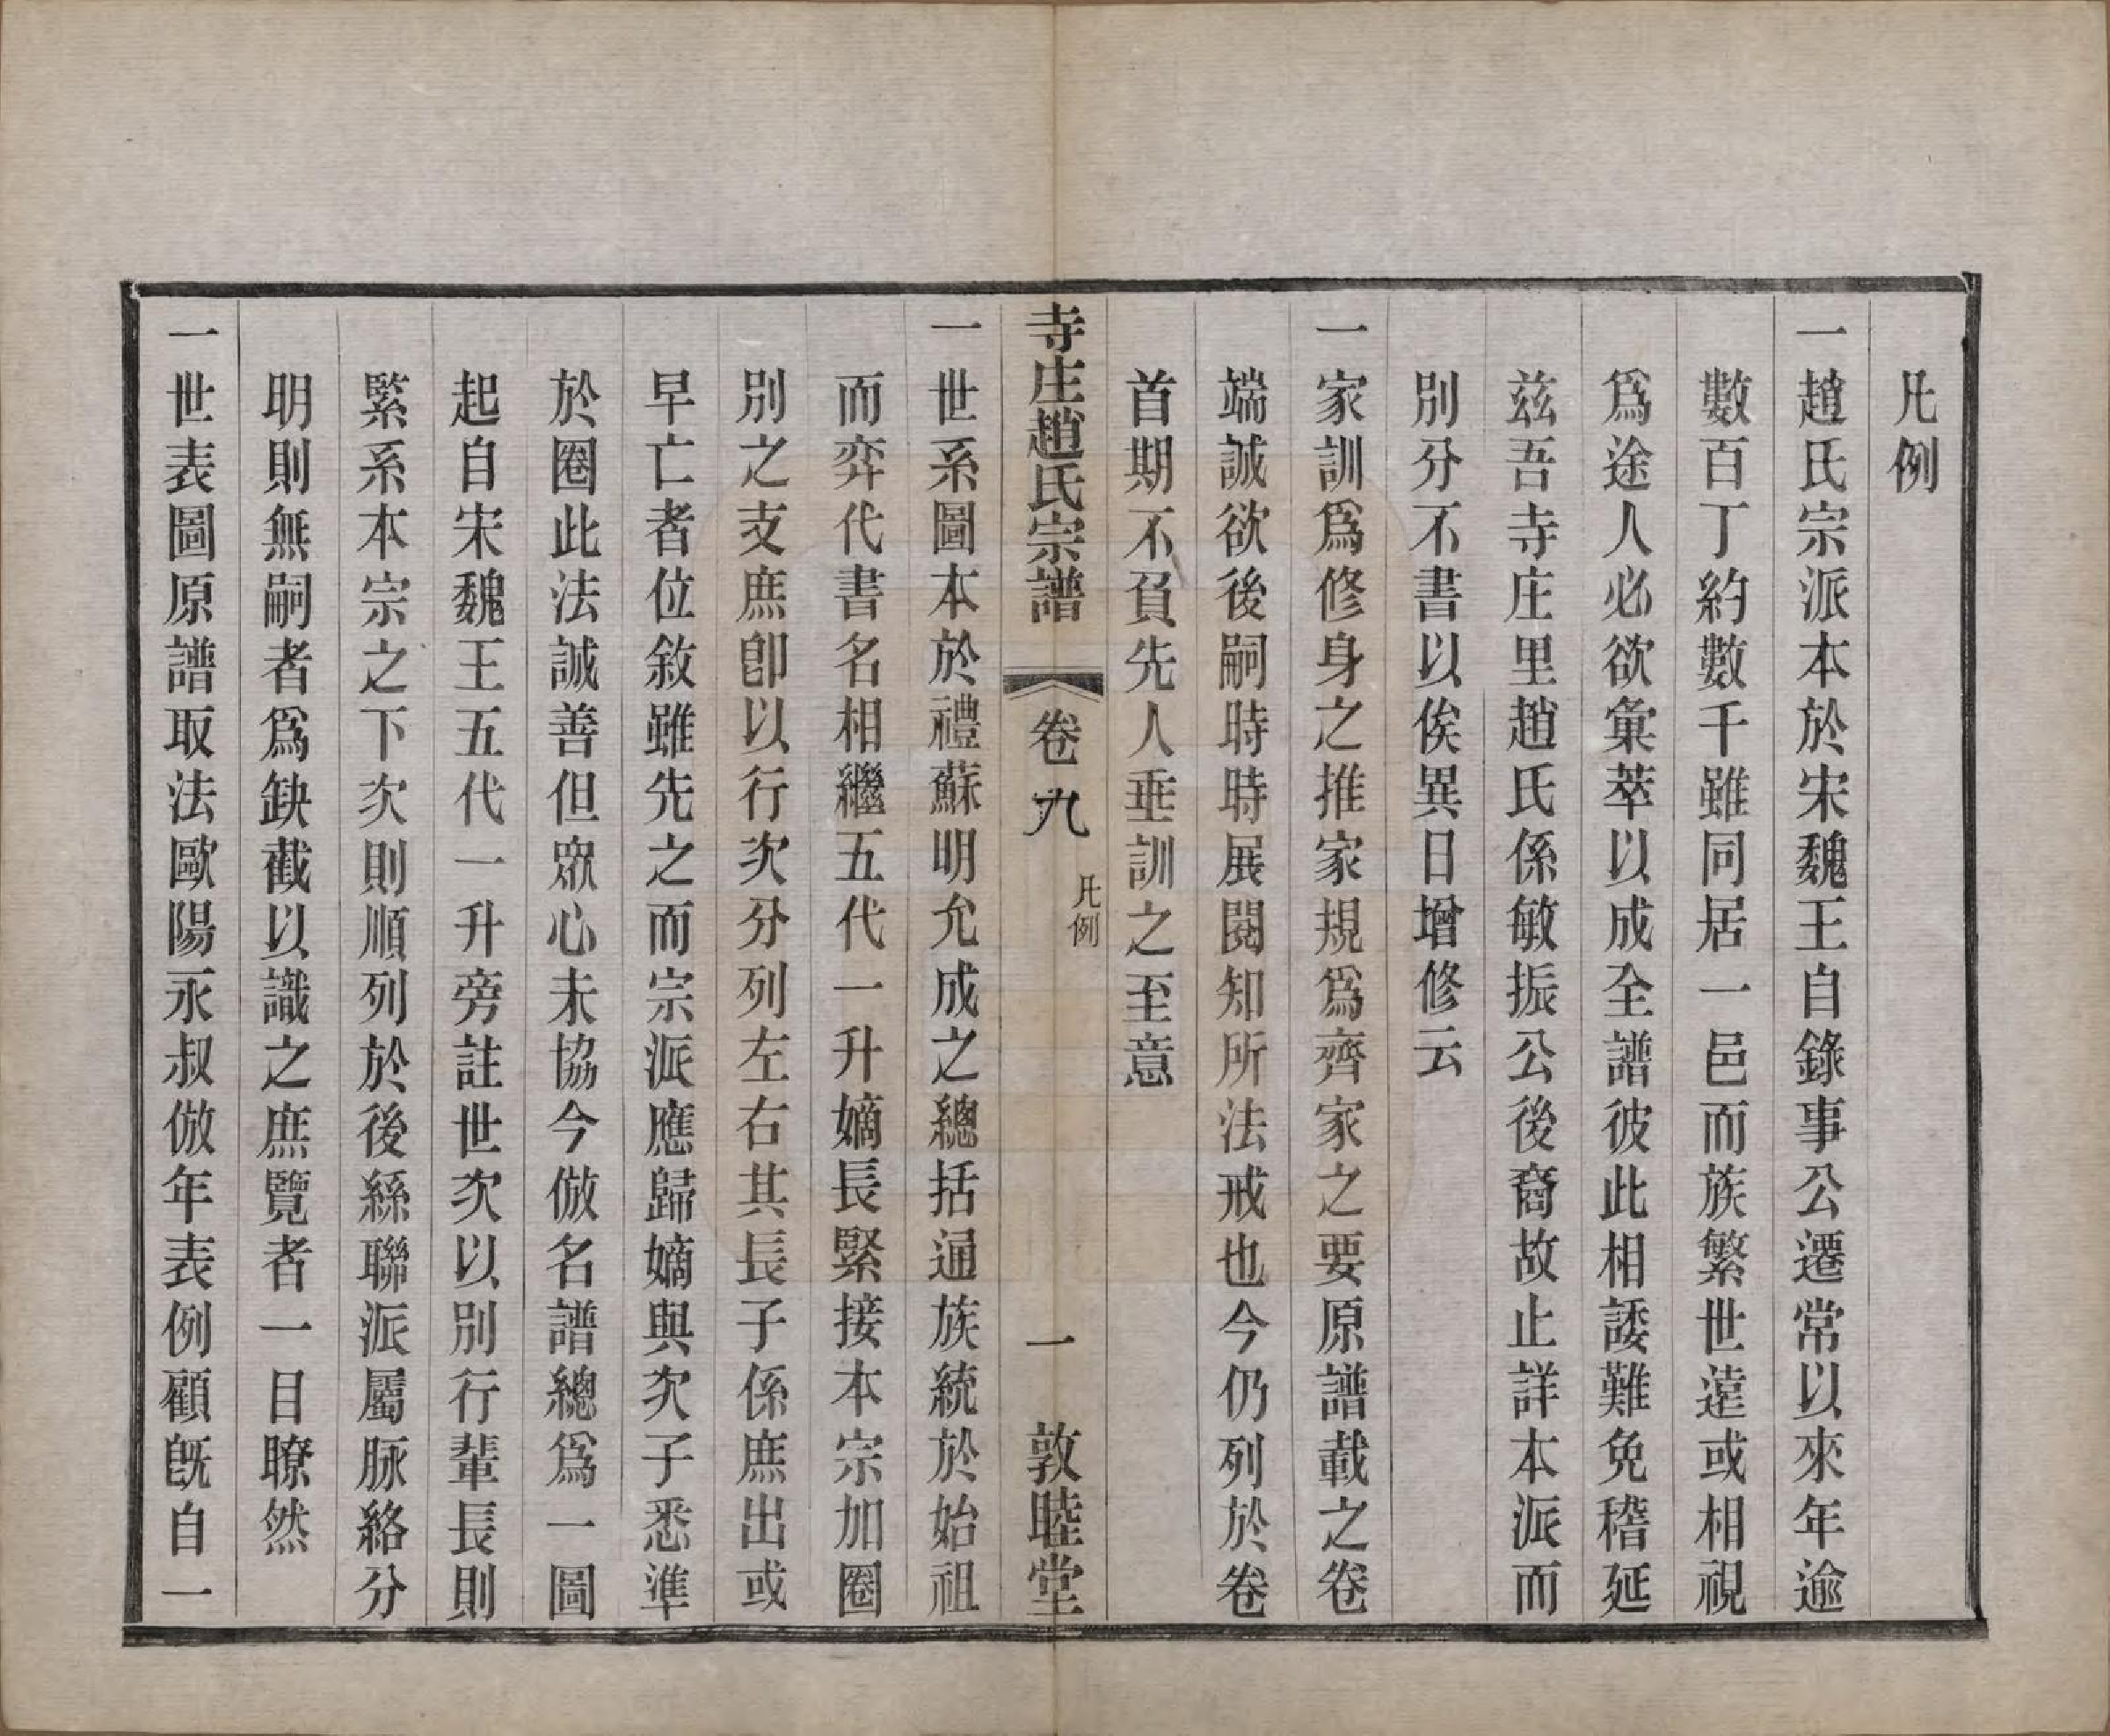 凡例
一趙氏宗派本於宋魏王自錄事公遷常以來年逾
數百丁約數千雖同居一邑而族繁世遠或相視
爲途人必欲彙萃以成全譜彼此相諉難免稽延
茲吾寺庄里趙氏係敏振公後裔故止詳本派而
別分不書以俟異日增修云
一家訓爲修身之推家規爲齊家之要原譜載之卷
端誠欲後嗣時時展閱知所法戒也今仍列於卷
首期不負先人垂訓之至意
寺庄趙氏宗譜 卷九 凡例 一 敦睦堂
一世系圖本於禮蘇明允成之總括通族統於始祖
而弈代書名相繼五代一升嫡長緊接本宗加圈
別之支庶卽以行次分列左右其長子係庶出或
早亡者位敘雖先之而宗派應歸嫡與次子悉準
於圈此法誠善但眾心未協今倣名譜總爲一圖
起自宋魏王五代一升旁註世次以別行輩長則
緊系本宗之下次則順列於後絲聯派屬脉絡分
明則無嗣者爲缺截以識之庶覽者一目瞭然
一世表圖原譜取法歐陽永叔倣年表例顧旣自一